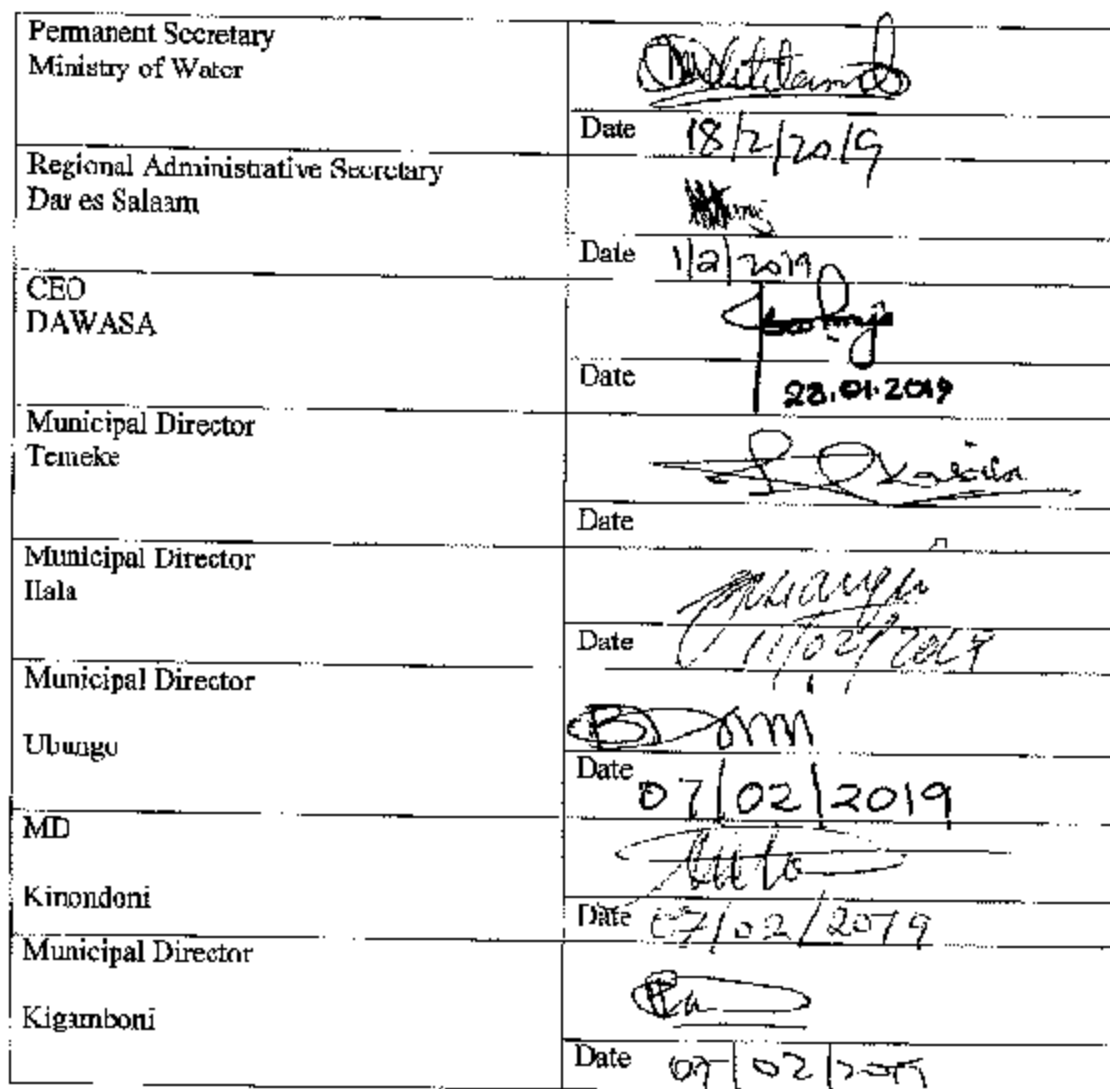 Permanent Secretary
Ministry of Water
Date 18/2/2019
Regional Administrative Secretary
Dar es Salaam
Date 1/2/2019
CEO
DAWASA
Date
28.01.2019
Municipal Director
Temeke
Date
Municipal Director
Ilala
Date 11/02/2019
Municipal Director
Ubungo
Date
07/02/2019
MD
Kinondoni
Date 07/02/2019
Municipal Director
Kigamboni
Date 07/02/2019